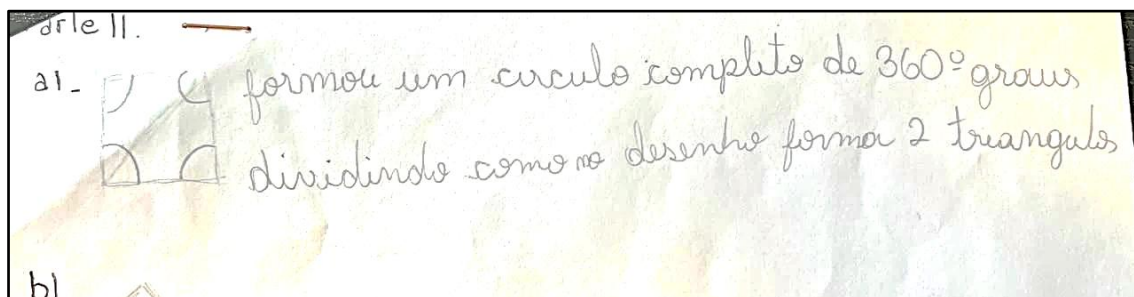 arte II.
a)- formou um circulo completo de 360º graus
dividindo como no desenho forma 2 triangulos
b)